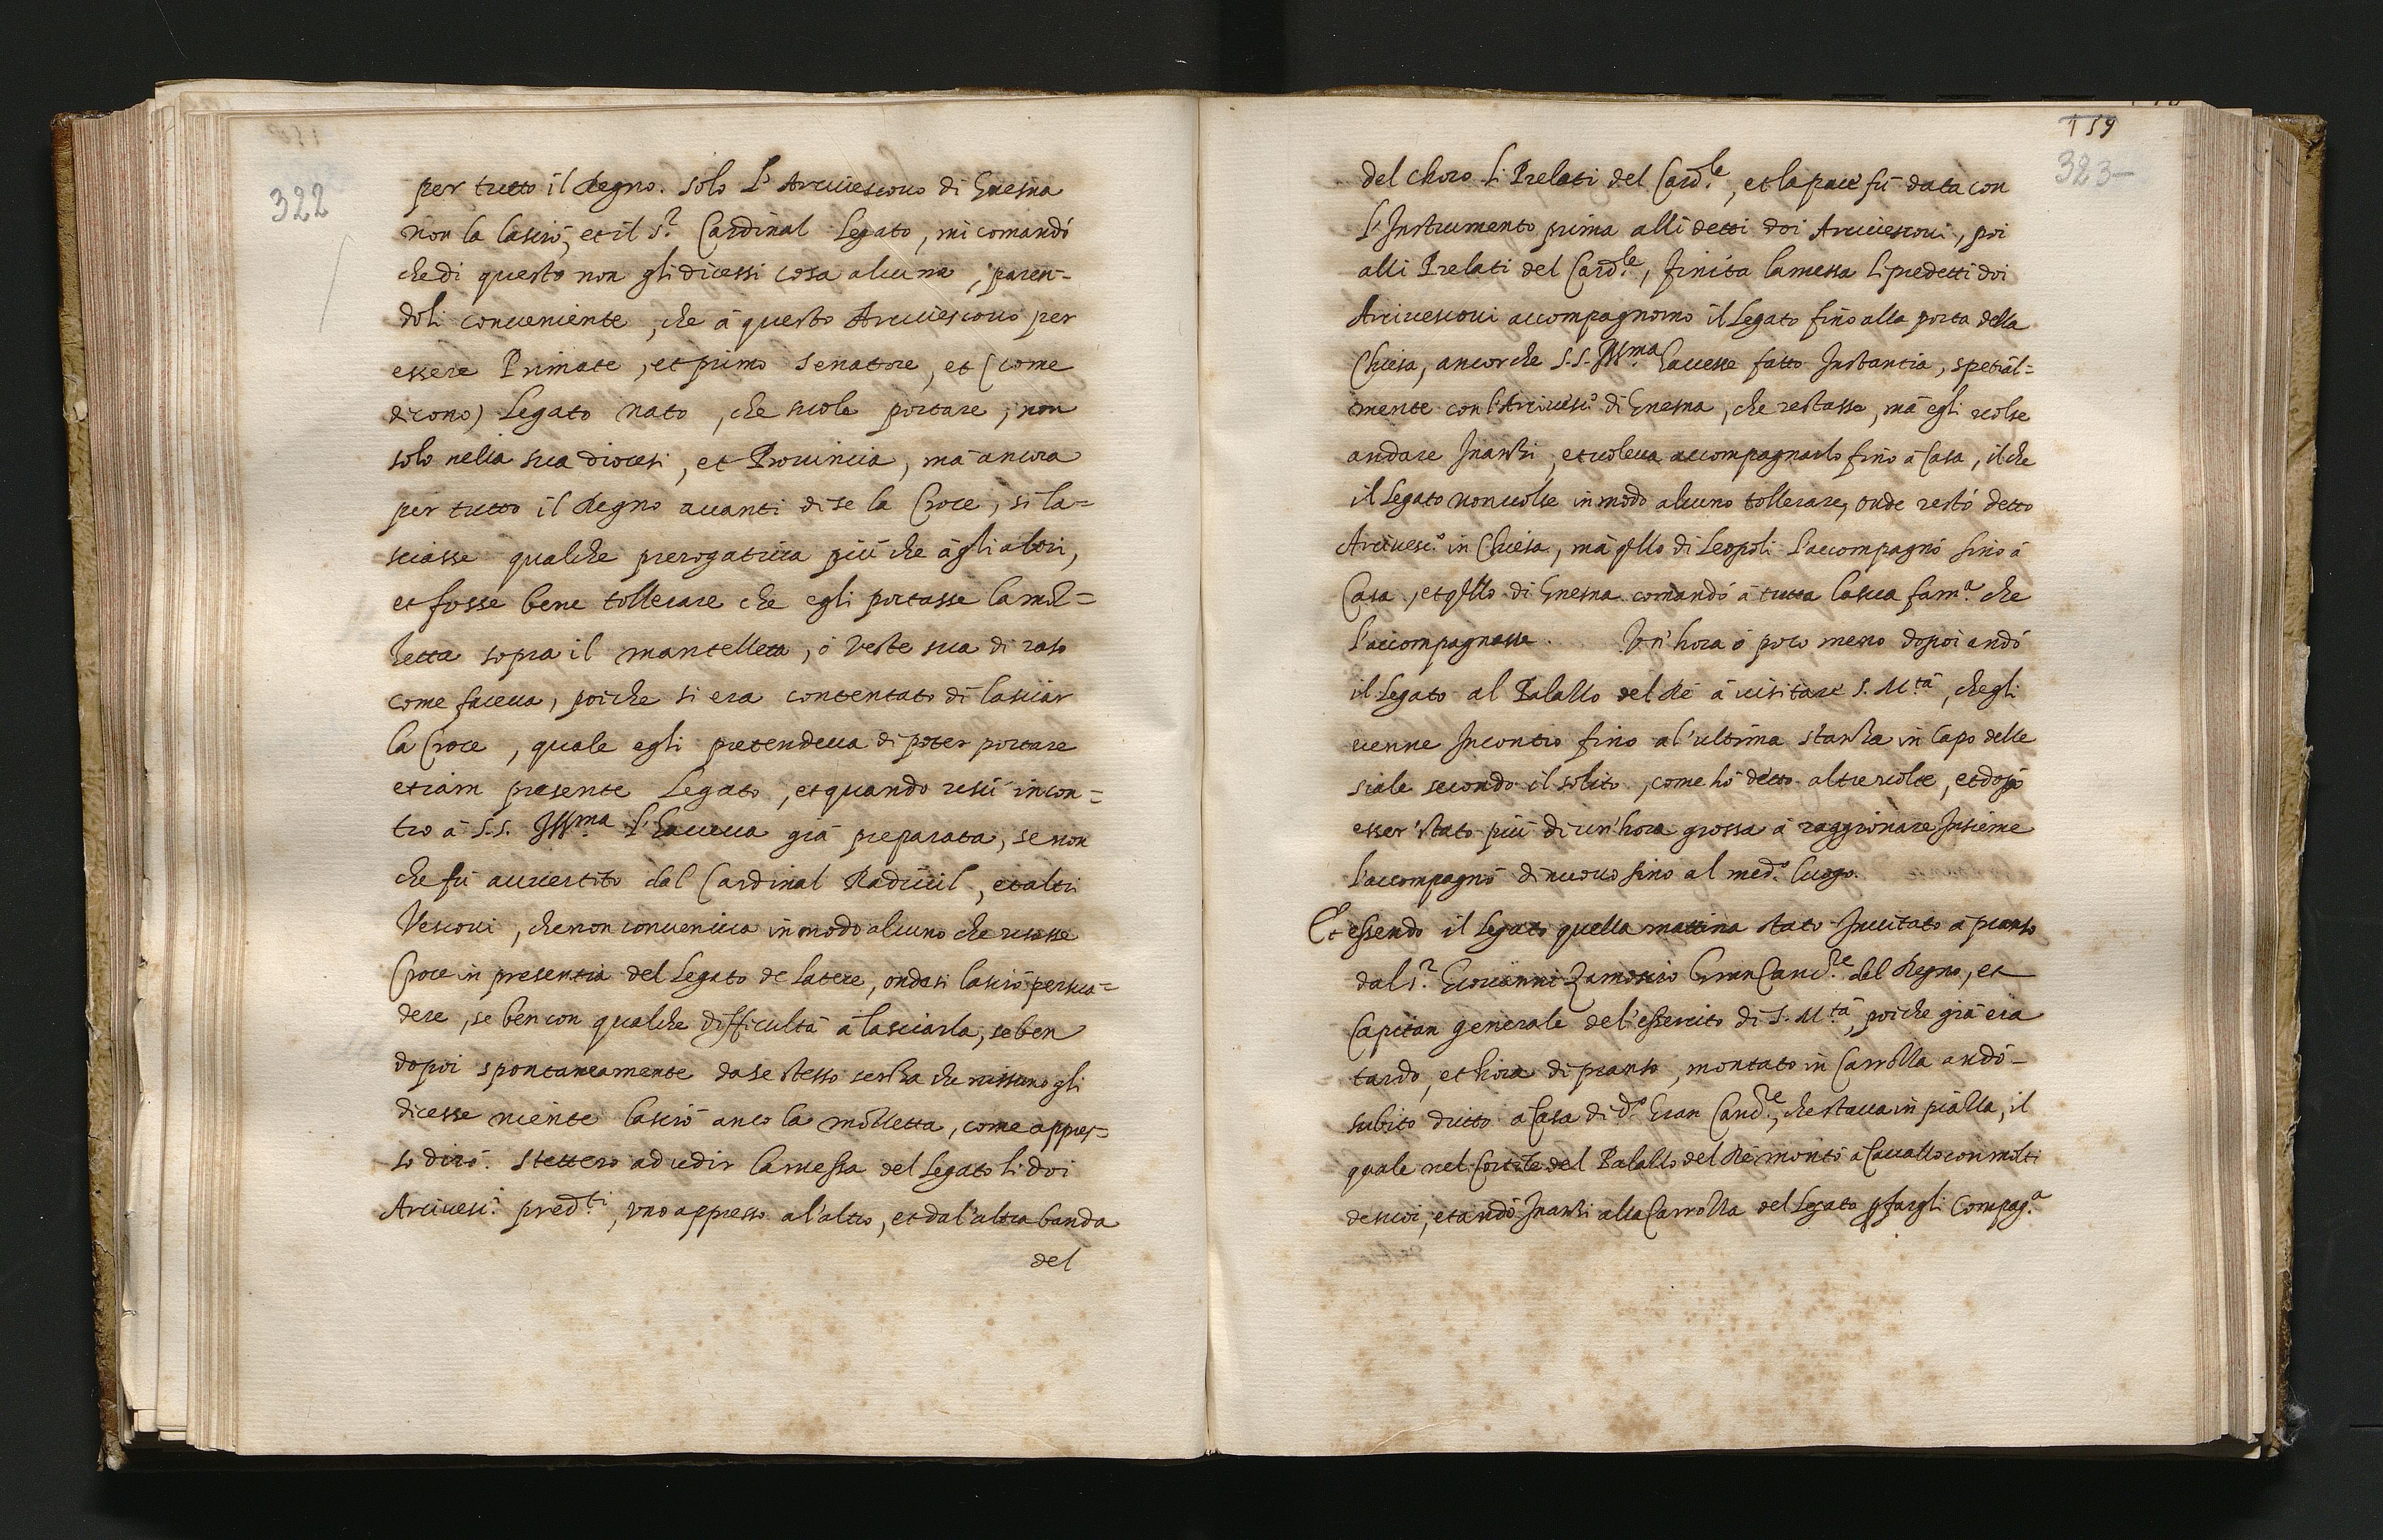 322
per tutto il Regno. solo L'Arciuescouo di Gnesna
non la lasciò, et il S.r Cardinal Legato, mi comandò
che di questo non gli dicessi cosa alcuna, paren=
doli conueniente, che à questo Arciuescouo per
essere Primate, et primo senatore, et (come
dicono) Legato nato, che suole portare, non
solo nella sua diocesi, et Prouincia, mà ancora
per tutto il Regno auanti di se la Croce, si la=
sciasse qualche prerogatiua più che à gli altri,
et fosse bene tollerare che egli portasse la moz=
zetta sopra il mantelletta, ò veste sua di raso
come faceua, poiche si era contentato di lasciar
la Croce, quale egli pretendeua di poter portare
etiam presente Legato, et quando uscì incon=
tro à S.S. Ill.ma l'haueua già preparata, se non
che fù auuertito dal Cardinal Radiuil, et altri
Vescoui, che non conueniua in modo alcuno che usasse
Croce in presentia del Legato de Latere, onde si lasciò persua=
dere, se ben con qualche difficultà à lasciarla, se ben
dopoi spontaneamente da se stesso senza che nissuno gli
dicesse niente lasciò anco la mozzetta, come appres=
so dirò. Stettero ad udir la messa del Legato li doi
Arciuesc.i pred.ti, uno appresso al'altro, et dal'altra banda
del
159
323
del Choro li Prelati del Card.le, et la pace fù data con
l'Instrumento prima alli detti doi Arciuescoui, poi
alli Prelati del Card.le, finita la messa li predetti doi
Arciuescoui accompagnorno il Legato fino alla porta della
Chiesa, ancorche S.S. Ill.ma hauesse fatto Instantia, spetial=
mente con l'Arciuesc.o di Gnesna, che restasse, mà egli uolse
andare Inanzi, et uoleua accompagnarlo fino à Casa, il che
il Legato non uolse in modo alcuno tollerare, onde restò detto
Arciuesc.o in Chiesa, mà qllo di Leopoli l'accompagnò sino à
Casa, et qllo di Gnesna comandò à tutta la sua fam.a che
l'accompagnasse. Un'hora ò poco meno dopoi andò
il Legato al Palazzo del Rè à uisitare S. M.tà, che gli
uenne Incontro fino al'ultima stanza in Capo delle
scale secondo il solito, come hò detto altre uolte, et dopò
esser stato più di un'hora grossa à raggionare Insieme
l'accompagnò di nuouo sino al med.o luogo.
Et essendo il Legato quella mattina stato Inuitato à pranso
dal S.r Giouanni Zamoscio Gran Canc.re del Regno, et
Capitan generale del'essercito di S. M.tà, poiche già era
tardo, et hora di pranso, montato in Carrozza andò
subito dritto à Casa di d.o Gran Canc.re, che staua in piazza, il
quale nel Cortile del Palazzo del Rè montò à Cauallo con molti
de suoi, et andò Inanzi alla Carrozza del Legato p fargli Compag.a